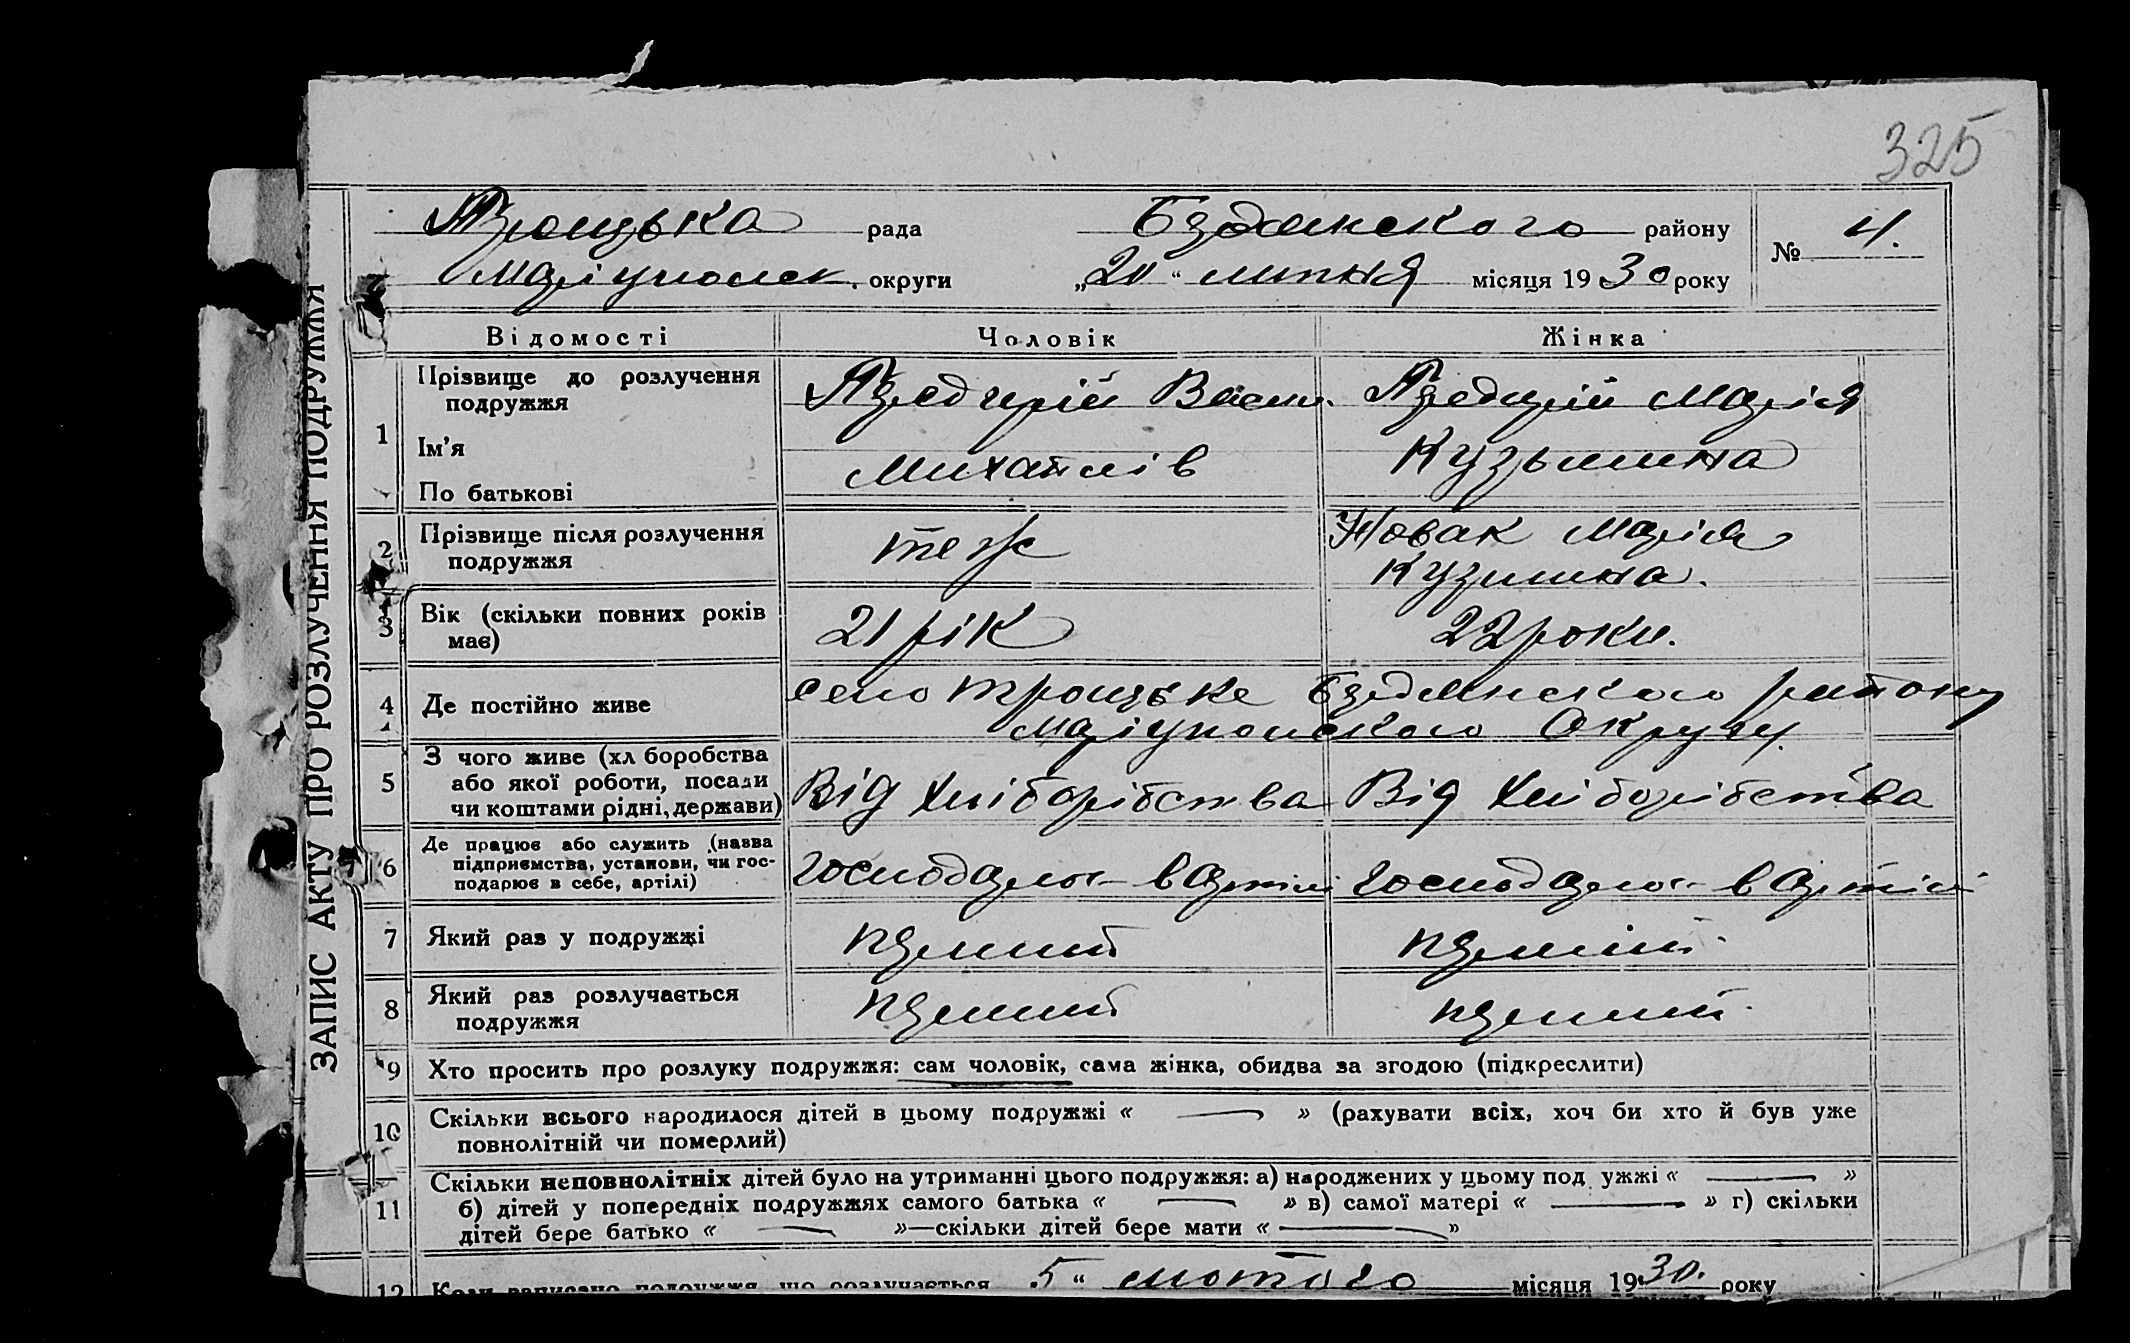 325
Троцька рада Будьонского района
Маріупольск. округи „20“ липня місяця 1930 року № 4.
Відомості Чоловік Жінка
1 Прізвище до розлучення подружжя
Ім'я
По батькові
Василь Марія
Михайлів Кузьмина
2 Прізвище після розлучення подружжя
теж Новак Марія
Кузмина.
3 Вік (скільки повних років має)
21 рік 22 роки.
4 Де постійно живе
село троцьке району
Маріупольского Округу.
5 З чого живе (хл боробства
або якої роботи, посади
чи коштами рідні, держави)
Від Хліборібства Від Хліборібства
6 Де працює або служить (назва
підприємства, установи, чи гос-
подарює в себе, артілі)
в артілі в артілі
7 Який раз у подружжі
перший перший
8 Який раз розлучається
подружжя
перший перший
9 Хто просить про розлуку подружжя: сам чоловік, сама жінка, обидва за згодою (підкреслити)
10 Скільки всього народилося дітей в цьому подружжі « — » (рахувати всіх, хоч би хто й був уже
повнолітній чи померлий)
11 Скільки неповнолітніх дітей було на утриманні цього подружжя: а) народжених у цьому под ужжі « — »
б) дітей у попередніх подружжях самого батька « — » в) самої матері « — » г) скільки
дітей бере батько « — »—скільки дітей бере мати « — »
12 Коли записано подружжя, що розлучається 5 “ лютого місяця 1930. року
ЗАПИС АКТУ ПРО РОЗЛУЧЕННЯ ПОДРУЖЖЯ